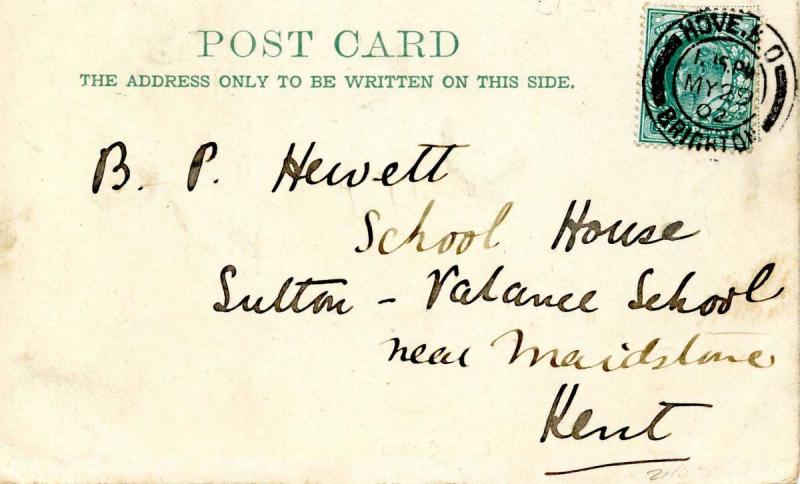 POST CARD
THE ADDRESS ONLY TO BE WRITTEN ON THIS SIDE.
HOVE. B.O
MY 29
02
BRIGHTON
B. P. Hewett
School House
Sutton - Valance School
near Maidstone
Kent